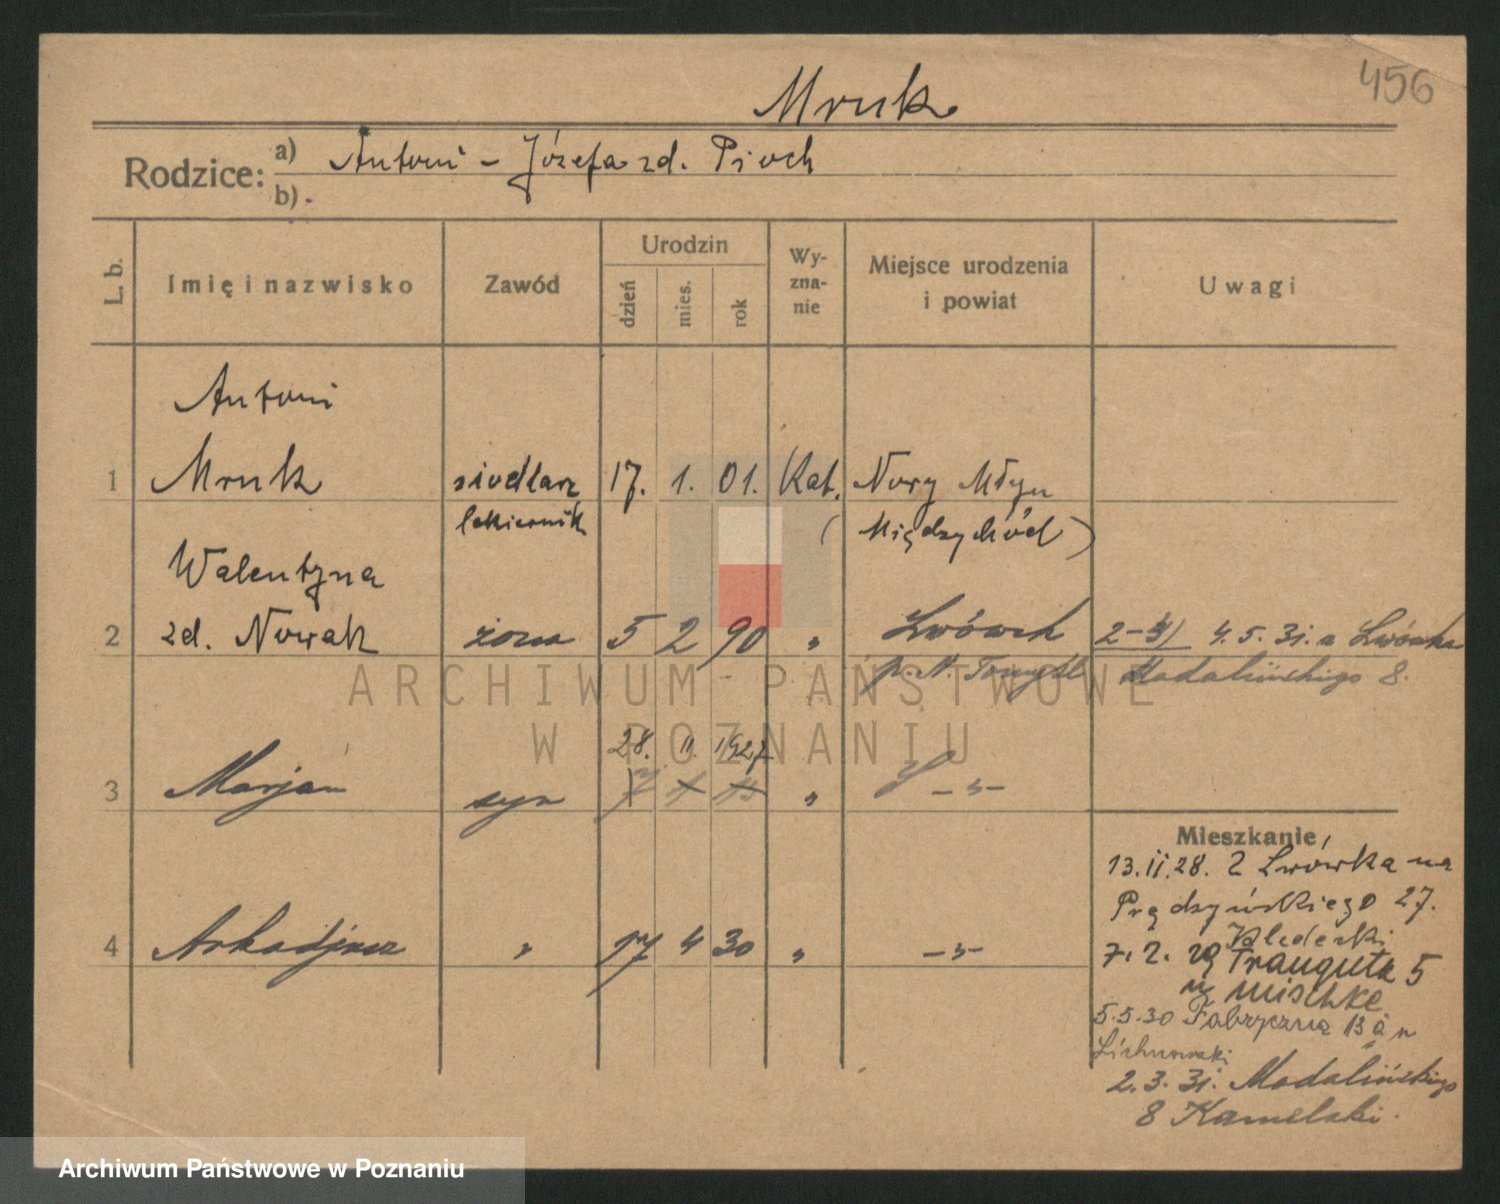 456
Mruk
Rodzice: a) Antoni - Józefa zd. Pioch
b) -
L. b.
Imię i nazwisko
Zawód
Urodzin
dzień
mies.
rok
Wy-
zna-
nie
Miejsce urodzenia
i powiat
Uwagi
Antoni
1 Mruk siodlarz 17. 1. 01. Kat. Nowy Młyn
lakiernik (Międzychód)
Walentyna
2 zd. Nowak żona 5 2 90 " Lwówek 2-4) 4.5.31. z Lwówka
p. N. Tomyśl Madalińskiego 8.
28. 11 1927
3 Marjan syn " -"-
Mieszkanie
13.II.28. Z Lwówka na
Prądzyńskiego 27.
4 Arkadjusz " 17 4 30 " -"-
7. 2. 29 Trauguta 5
u Mischke
5.5.30 Fabryczna 13
Lichnowski
2. 3. 31. Madalińskiego
8 Kamelski.
ARCHIWUM PAŃSTWOWE
W POZNANIU
Archiwum Państwowe w Poznaniu